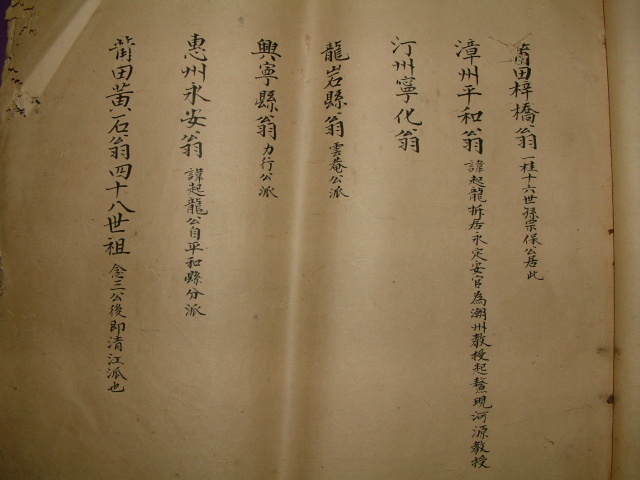 莆田梓橋翁 一柱十六世孫宗保公居此
漳州平和翁 諱起龍拆居永定安官為潮州教授起鰲現河源教授
汀州寧化翁
龍岩縣翁 雲菴公派
興寧縣翁 力行公派
惠州永安翁 諱起龍公自平和縣分派
莆田黃石翁四十八世祖 念三公後即清江派也